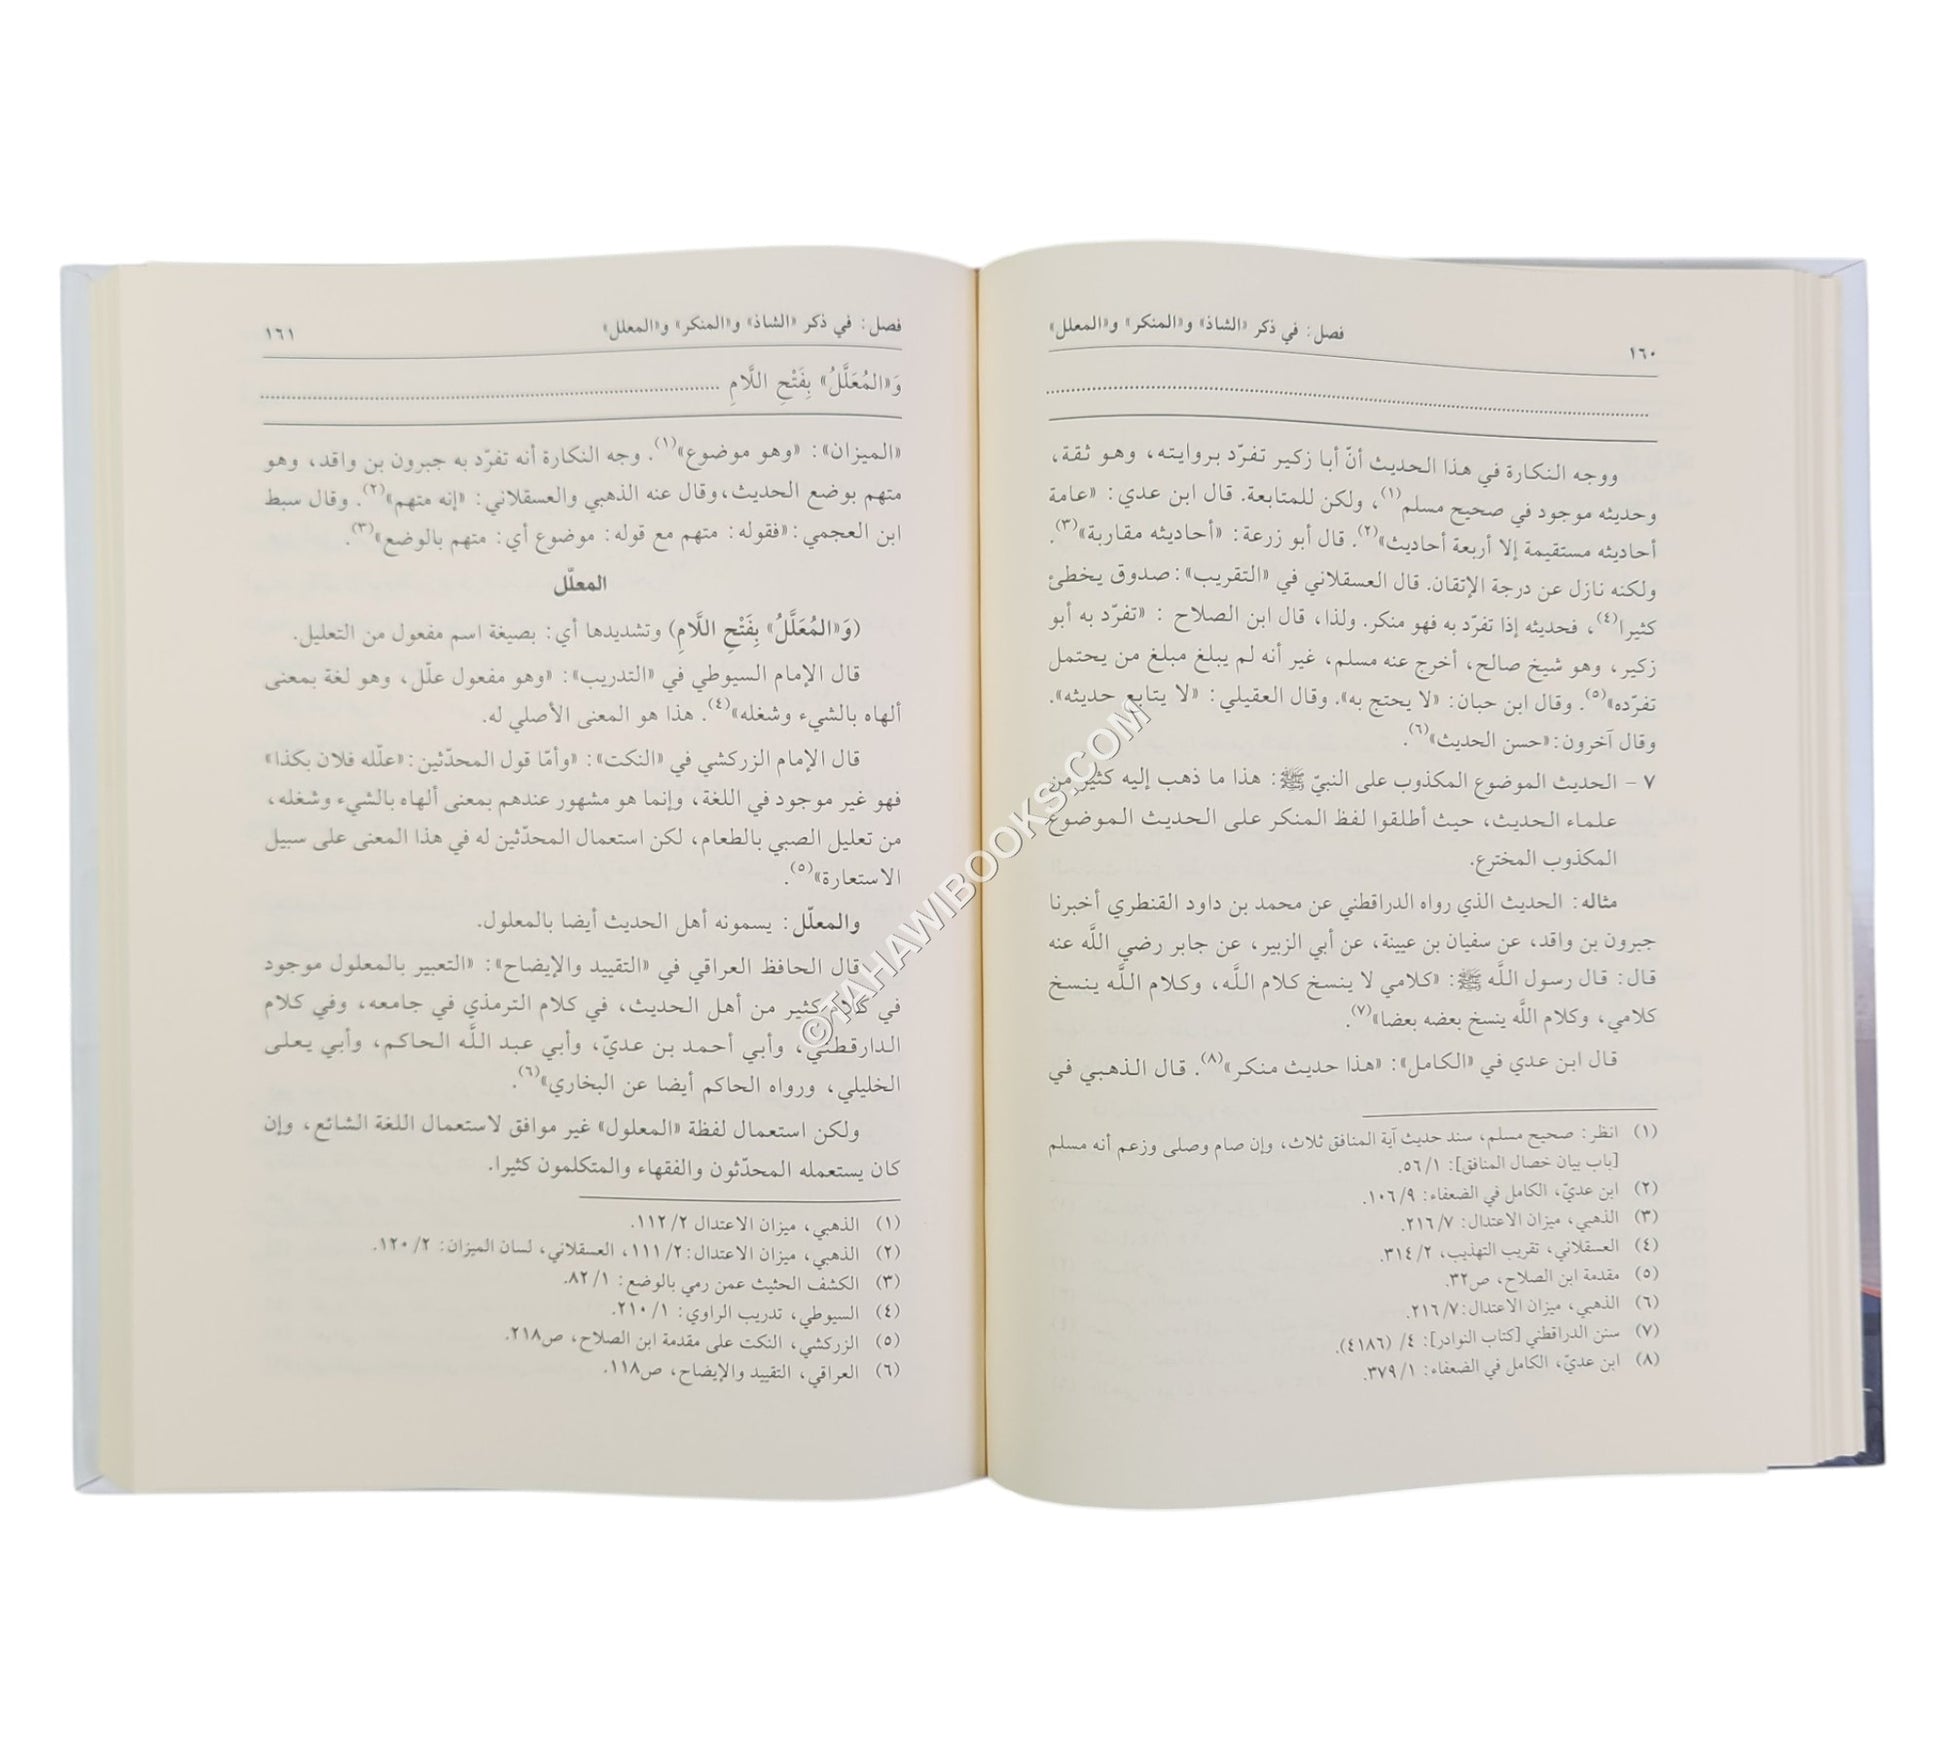 فصل: في ذكر «الشاذ» و«المنكر» و«المعلل»
١٦٠
ووجه النكارة في هذا الحديث أنّ أبا زكير تفرّد بروايته، وهو ثقة،
وحديثه موجود في صحيح مسلم(١)، ولكن للمتابعة. قال ابن عدي: «عامة
أحاديثه مستقيمة إلا أربعة أحاديث»(٢). قال أبو زرعة: «أحاديثه مقاربة»(٣).
ولكنه نازل عن درجة الإتقان. قال العسقلاني في «التقريب»: صدوق يخطئ
كثيرا(٤)، فحديثه إذا تفرّد به فهو منكر. ولذا، قال ابن الصلاح : «تفرّد به أبو
زكير، وهو شيخ صالح، أخرج عنه مسلم، غير أنه لم يبلغ مبلغ من يحتمل
تفرّده»(٥). وقال ابن حبان: «لا يحتج به». وقال العقيلي: «لا يتابع حديثه».
وقال آخرون: «حسن الحديث»(٦).
٧ - الحديث الموضوع المكذوب على النبيّ ﷺ: هذا ما ذهب إليه كثير من
علماء الحديث، حيث أطلقوا لفظ المنكر على الحديث الموضوع
المكذوب المخترع.
مثاله: الحديث الذي رواه الدراقطني عن محمد بن داود القنطري أخبرنا
جبرون بن واقد، عن سفيان بن عيينة، عن أبي الزبير، عن جابر رضي اللَّه عنه
قال: قال رسول اللَّه ﷺ: «كلامي لا ينسخ كلام اللَّه، وكلام اللَّه ينسخ
كلامي، وكلام اللَّه ينسخ بعضه بعضا»(٧).
قال ابن عدي في «الكامل»: «هذا حديث منكر»(٨). قال الذهبي في
(١) انظر: صحيح مسلم، سند حديث آية المنافق ثلاث، وإن صام وصلى وزعم أنه مسلم
[باب بيان خصال المنافق]: ١/ ٥٦.
(٢) ابن عديّ، الكامل في الضعفاء: ٩/ ١٠٦.
(٣) الذهبي، ميزان الاعتدال: ٧/ ٢١٦.
(٤) العسقلاني، تقريب التهذيب، ٢/ ٣١٤.
(٥) مقدمة ابن الصلاح، ص٣٢.
(٦) الذهبي، ميزان الاعتدال: ٧/ ٢١٦.
(٧) سنن الدراقطني [كتاب النوادر]: ٤/ (٤١٨٦).
(٨) ابن عديّ، الكامل في الضعفاء: ١/ ٣٧٩.
فصل: في ذكر «الشاذ» و«المنكر» و«المعلل»
١٦١
وَ«المُعَلَّلُ» بِفَتْحِ اللَّامِ
«الميزان»: «وهو موضوع»(١). وجه النكارة أنه تفرّد به جبرون بن واقد، وهو
متهم بوضع الحديث، وقال عنه الذهبي والعسقلاني: «إنه متهم»(٢). وقال سبط
ابن العجمي: «فقوله: متهم مع قوله: موضوع أي: متهم بالوضع»(٣).
المعلّل
(وَ«المُعَلَّلُ» بِفَتْحِ اللَّامِ) وتشديدها أي: بصيغة اسم مفعول من التعليل.
قال الإمام السيوطي في «التدريب»: «وهو مفعول علّل، وهو لغة بمعنى
ألهاه بالشيء وشغله»(٤). هذا هو المعنى الأصلي له.
قال الإمام الزركشي في «النكت»: «وأمّا قول المحدّثين: «علّله فلان بكذا»
فهو غير موجود في اللغة، وإنما هو مشهور عندهم بمعنى ألهاه بالشيء وشغله،
من تعليل الصبي بالطعام، لكن استعمال المحدّثين له في هذا المعنى على سبيل
الاستعارة»(٥).
والمعلّل: يسمونه أهل الحديث أيضا بالمعلول.
قال الحافظ العراقي في «التقييد والإيضاح»: «التعبير بالمعلول موجود
في كلام كثير من أهل الحديث، في كلام الترمذي في جامعه، وفي كلام
الدارقطني، وأبي أحمد بن عديّ، وأبي عبد اللَّه الحاكم، وأبي يعلى
الخليلي، ورواه الحاكم أيضا عن البخاري»(٦).
ولكن استعمال لفظة «المعلول» غير موافق لاستعمال اللغة الشائع، وإن
كان يستعمله المحدّثون والفقهاء والمتكلمون كثيرا.
(١) الذهبي، ميزان الاعتدال ٢/ ١١٢.
(٢) الذهبي، ميزان الاعتدال: ٢/ ١١١، العسقلاني، لسان الميزان: ٢/ ١٢٠.
(٣) الكشف الحثيث عمن رمي بالوضع: ١/ ٨٢.
(٤) السيوطي، تدريب الراوي: ١/ ٢١٠.
(٥) الزركشي، النكت على مقدمة ابن الصلاح، ص٢١٨.
(٦) العراقي، التقييد والإيضاح، ص١١٨.
©TAHAWIBOOKS.COM